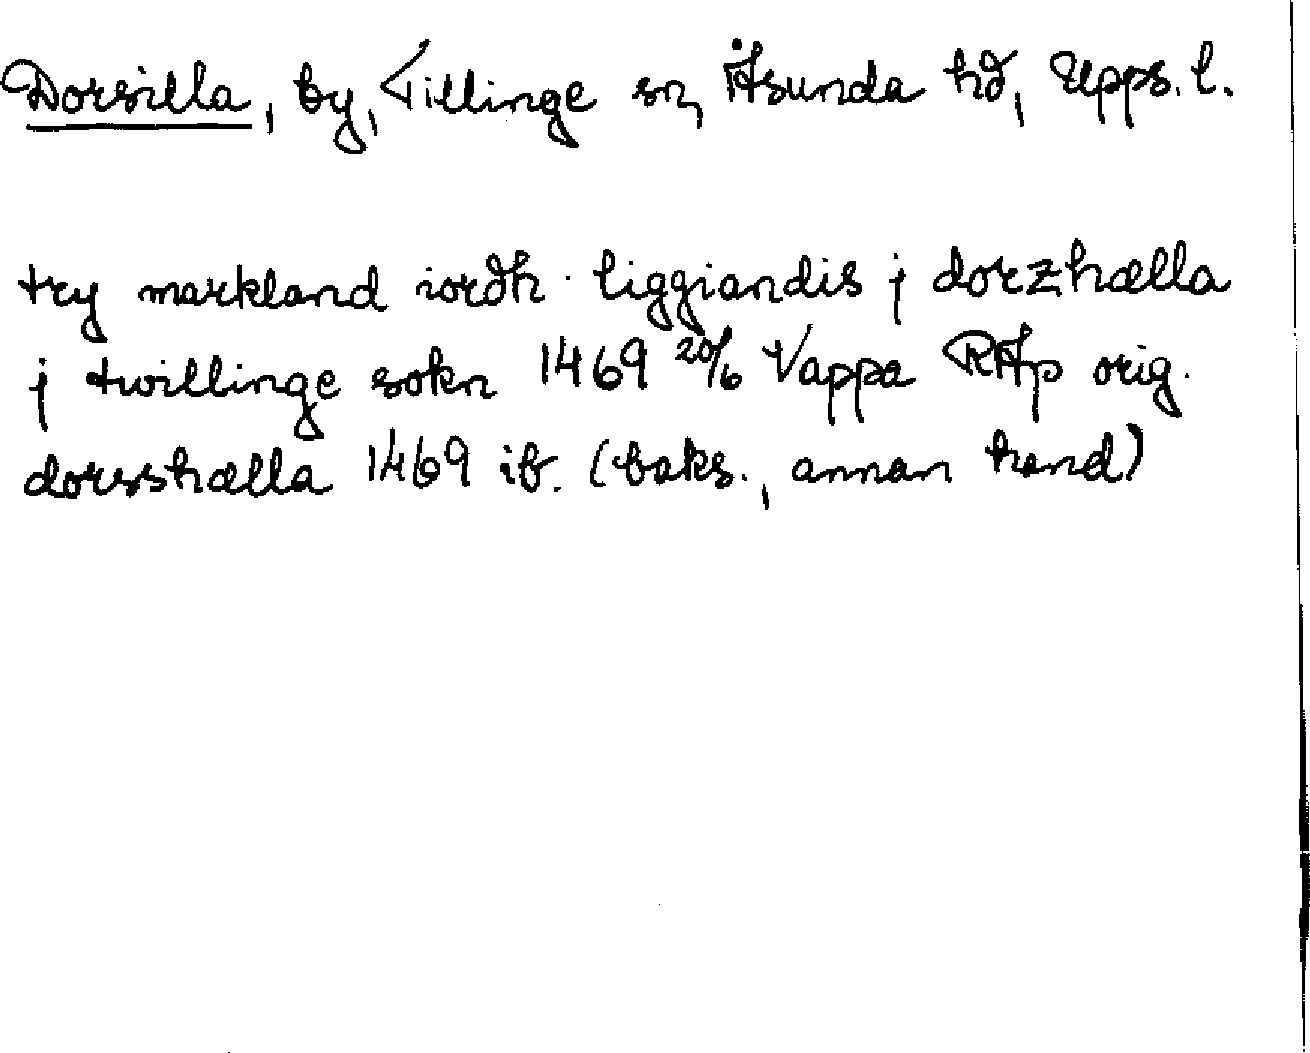 Dorsilla, by, Tillinge sn, Åsunda hd, Upps. l.
try markland iordh liggiandis j dorzhælla
j twillinge sokn 1469 20/6 Vappa RAp orig.
dorsshælla 1469 ib. (baks., annan hand)